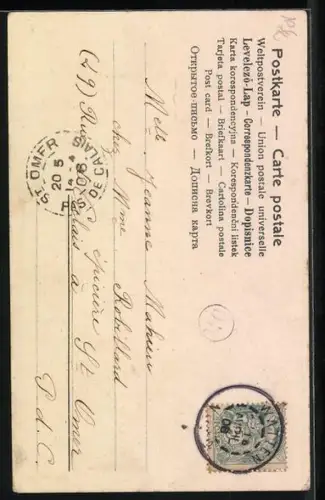 Postkarte — Carte postale
Weltpostverein — Union postale universelle
Levelező-Lap - Correspondenzkarte - Dopisnice
Karta korespondencyjna — Korespondenční listek
Tarjeta postal — Briefkaart — Cartolina postale
Post card — Brefkort — Brevkort
Открытое письмо — Дописна карта
Melle Jeanne Mahieu
chez Mme Robillard
(49) Rue St Omer
P. d. C.
ST OMER
20 5
PAS DE CALAIS